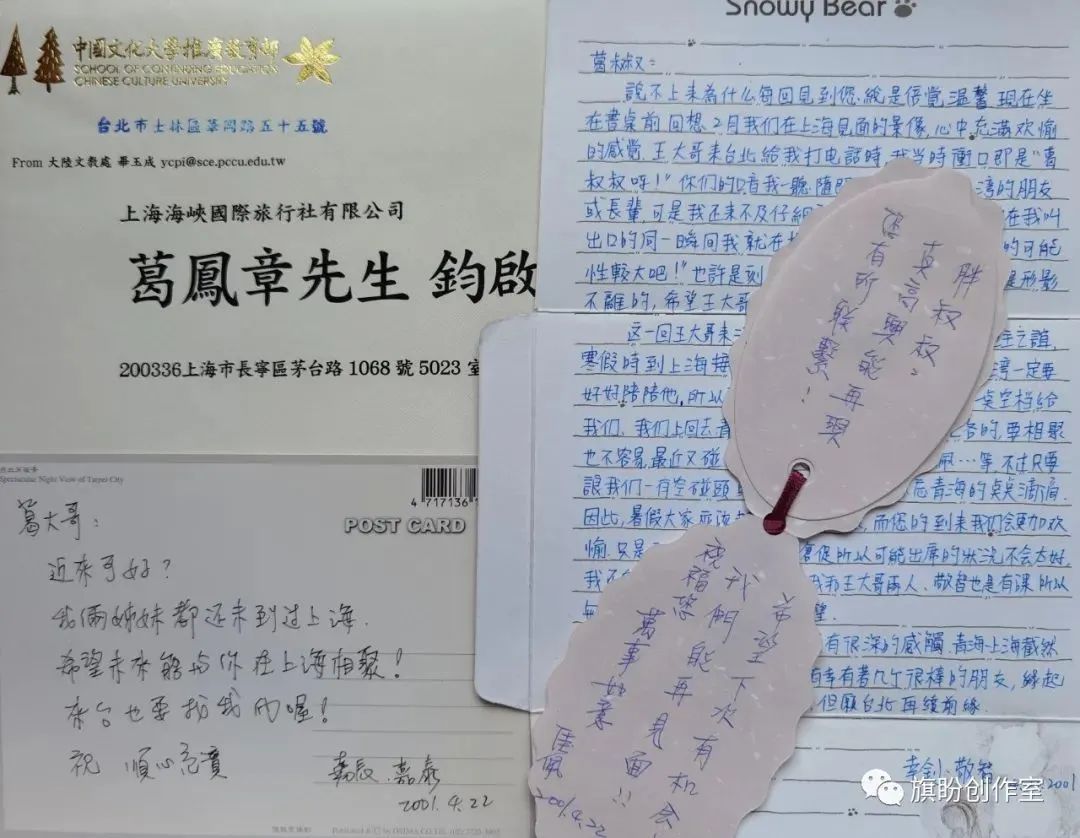 中國文化大學推廣教育部
SCHOOL OF CONTINUING EDUCATION
CHINESE CULTURE UNIVERSITY
台北市士林區華岡路五十五號
From 大陸文教處 畢玉成 ycpi@sce.pccu.edu.tw
上海海峽國際旅行社有限公司
葛鳳章先生 鈞啟
200336上海市長寧區茅台路 1068 號 5023 室
Spectacular Night View of Taipei City
4 717136
POST CARD
葛大哥：
近來可好？
我倆姊妹都還未到过上海.
希望未來能与你在上海相聚！
來台也要找我们喔！
祝 順心
嘉辰.嘉泰
2001.4.22
Snowy Bear
葛叔叔：
說不上來為什么每回見到您.總是倍覺溫馨.現在坐
在書桌前.回想.2月我们在上海見面的景像,心中充滿欢愉
的感觉.王大哥來台北給我打电話時,我当時衝口即是"葛
叔叔呀！"你们的口音我一聽.隨即
灣的朋友
或長輩,可是我还來不及仔細
在我叫
出口的同一瞬间我就在
的可能
性較大吧！"也許是刻
是形影
不離的,希望王大哥
这一回王大哥來
主之誼,
寒假時到上海接
灣一定要
好好陪陪他,所以
空档給
我们、我们上回去青
的.要相聚
也不容易.最近又碰
…等.不过只要
說我们一有空碰頭
青海的点点滴滴.
因此,暑假大家应该
,而您的到來我们会更加欢
愉.只是
倉促所以可能出席的狀況不会太好,
我不
我和王大哥兩人、敬智也是有課所以
有很深的感觸.青海上海截然
有幸有著几个很棒的朋友,緣起
但願台北再續前緣
幸釗、敬智
2001
胖叔叔：
真高興能再跟
您有所联繫！
希望下次有机会
我們能再見面！！
祝福您
萬事如意
佳佩
2001.4.22
旗盼创作室